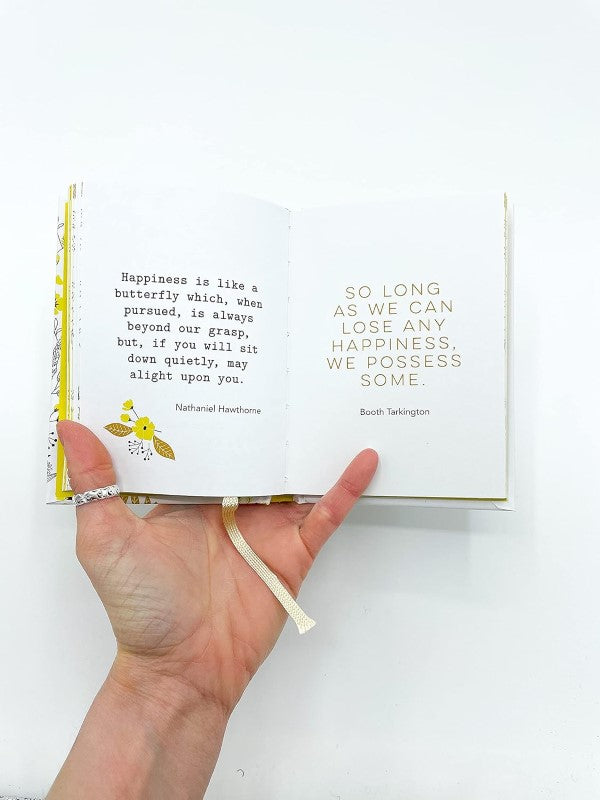 Happiness is like a
butterfly which, when
pursued, is always
beyond our grasp,
but, if you will sit
down quietly, may
alight upon you.
Nathaniel Hawthorne
SO LONG
AS WE CAN
LOSE ANY
HAPPINESS,
WE POSSESS
SOME.
Booth Tarkington